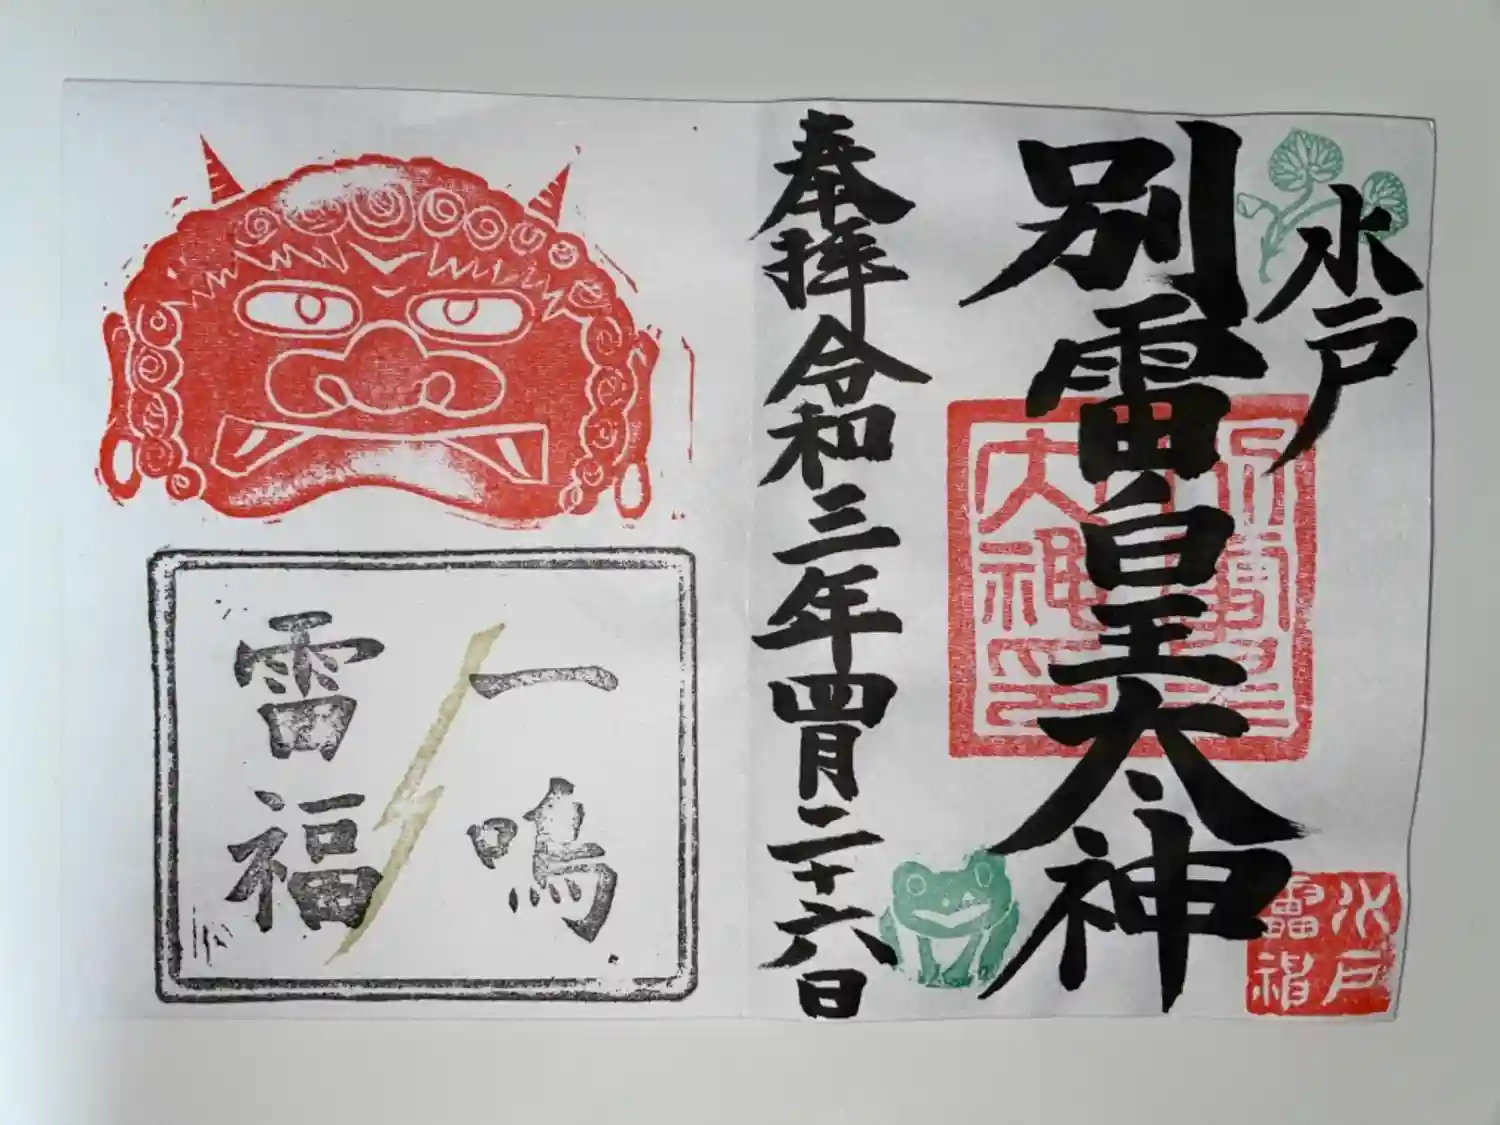 水戸
別雷皇大神
奉拝 令和三年四月二十六日
水戸
雷神
一鳴
雷福